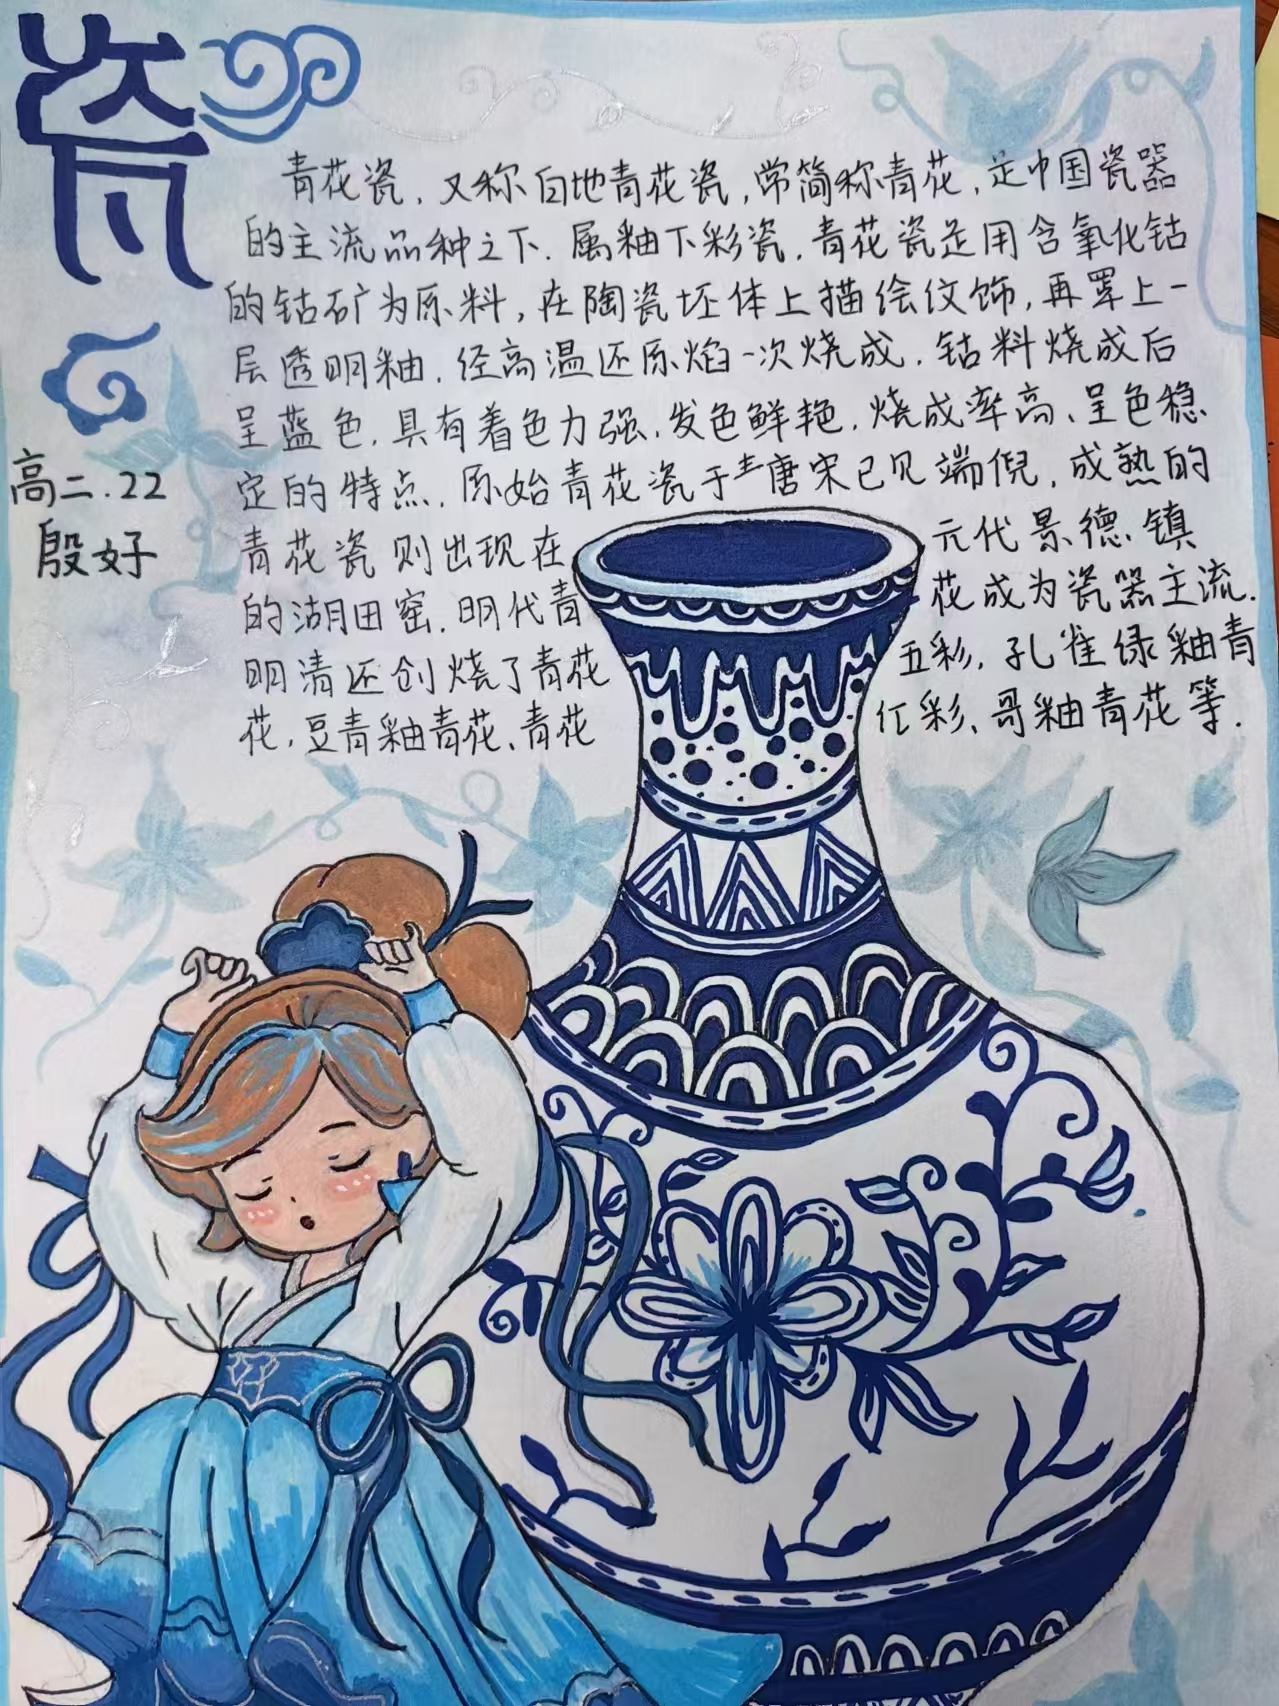 瓷
青花瓷，又称白地青花瓷，常简称青花，是中国瓷器
的主流品种之下．属釉下彩瓷．青花瓷是用含氧化钴
的钴矿为原料，在陶瓷坯体上描绘纹饰，再罩上一
层透明釉．经高温还原焰一次烧成．钴料烧成后
呈蓝色．具有着色力强．发色鲜艳．烧成率高、呈色稳
定的特点．原始青花瓷于唐宋已见端倪．成熟的
青花瓷则出现在元代景德镇
的湖田窑．明代青花成为瓷器主流．
明清还创烧了青花五彩、孔雀绿釉青
花、豆青釉青花、青花红彩、哥釉青花等．
高二．22
殷好